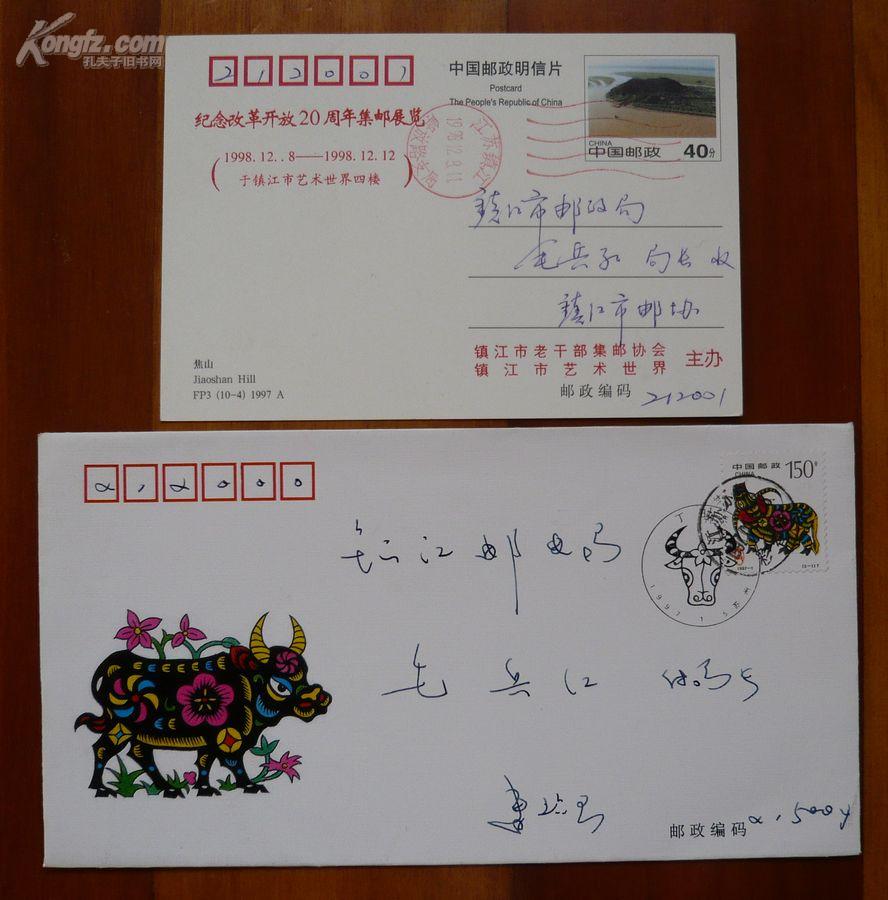 Kongfz.com
孔夫子旧书网
212001
中国邮政明信片
Postcard
The People's Republic of China
CHINA
中国邮政 40分
纪念改革开放20周年集邮展览
1998.12..8——1998.12.12
于镇江市艺术世界四楼
江苏镇江
镇江市邮政局
毛兵 局长 收
镇江市邮协
镇江市老干部集邮协会
镇江市艺术世界
主办
邮政编码 212001
焦山
Jiaoshan Hill
FP3 (10-4) 1997 A
212000
中国邮政 150
CHINA
1997-1
镇江邮电局
毛兵江
邮政编码 215004